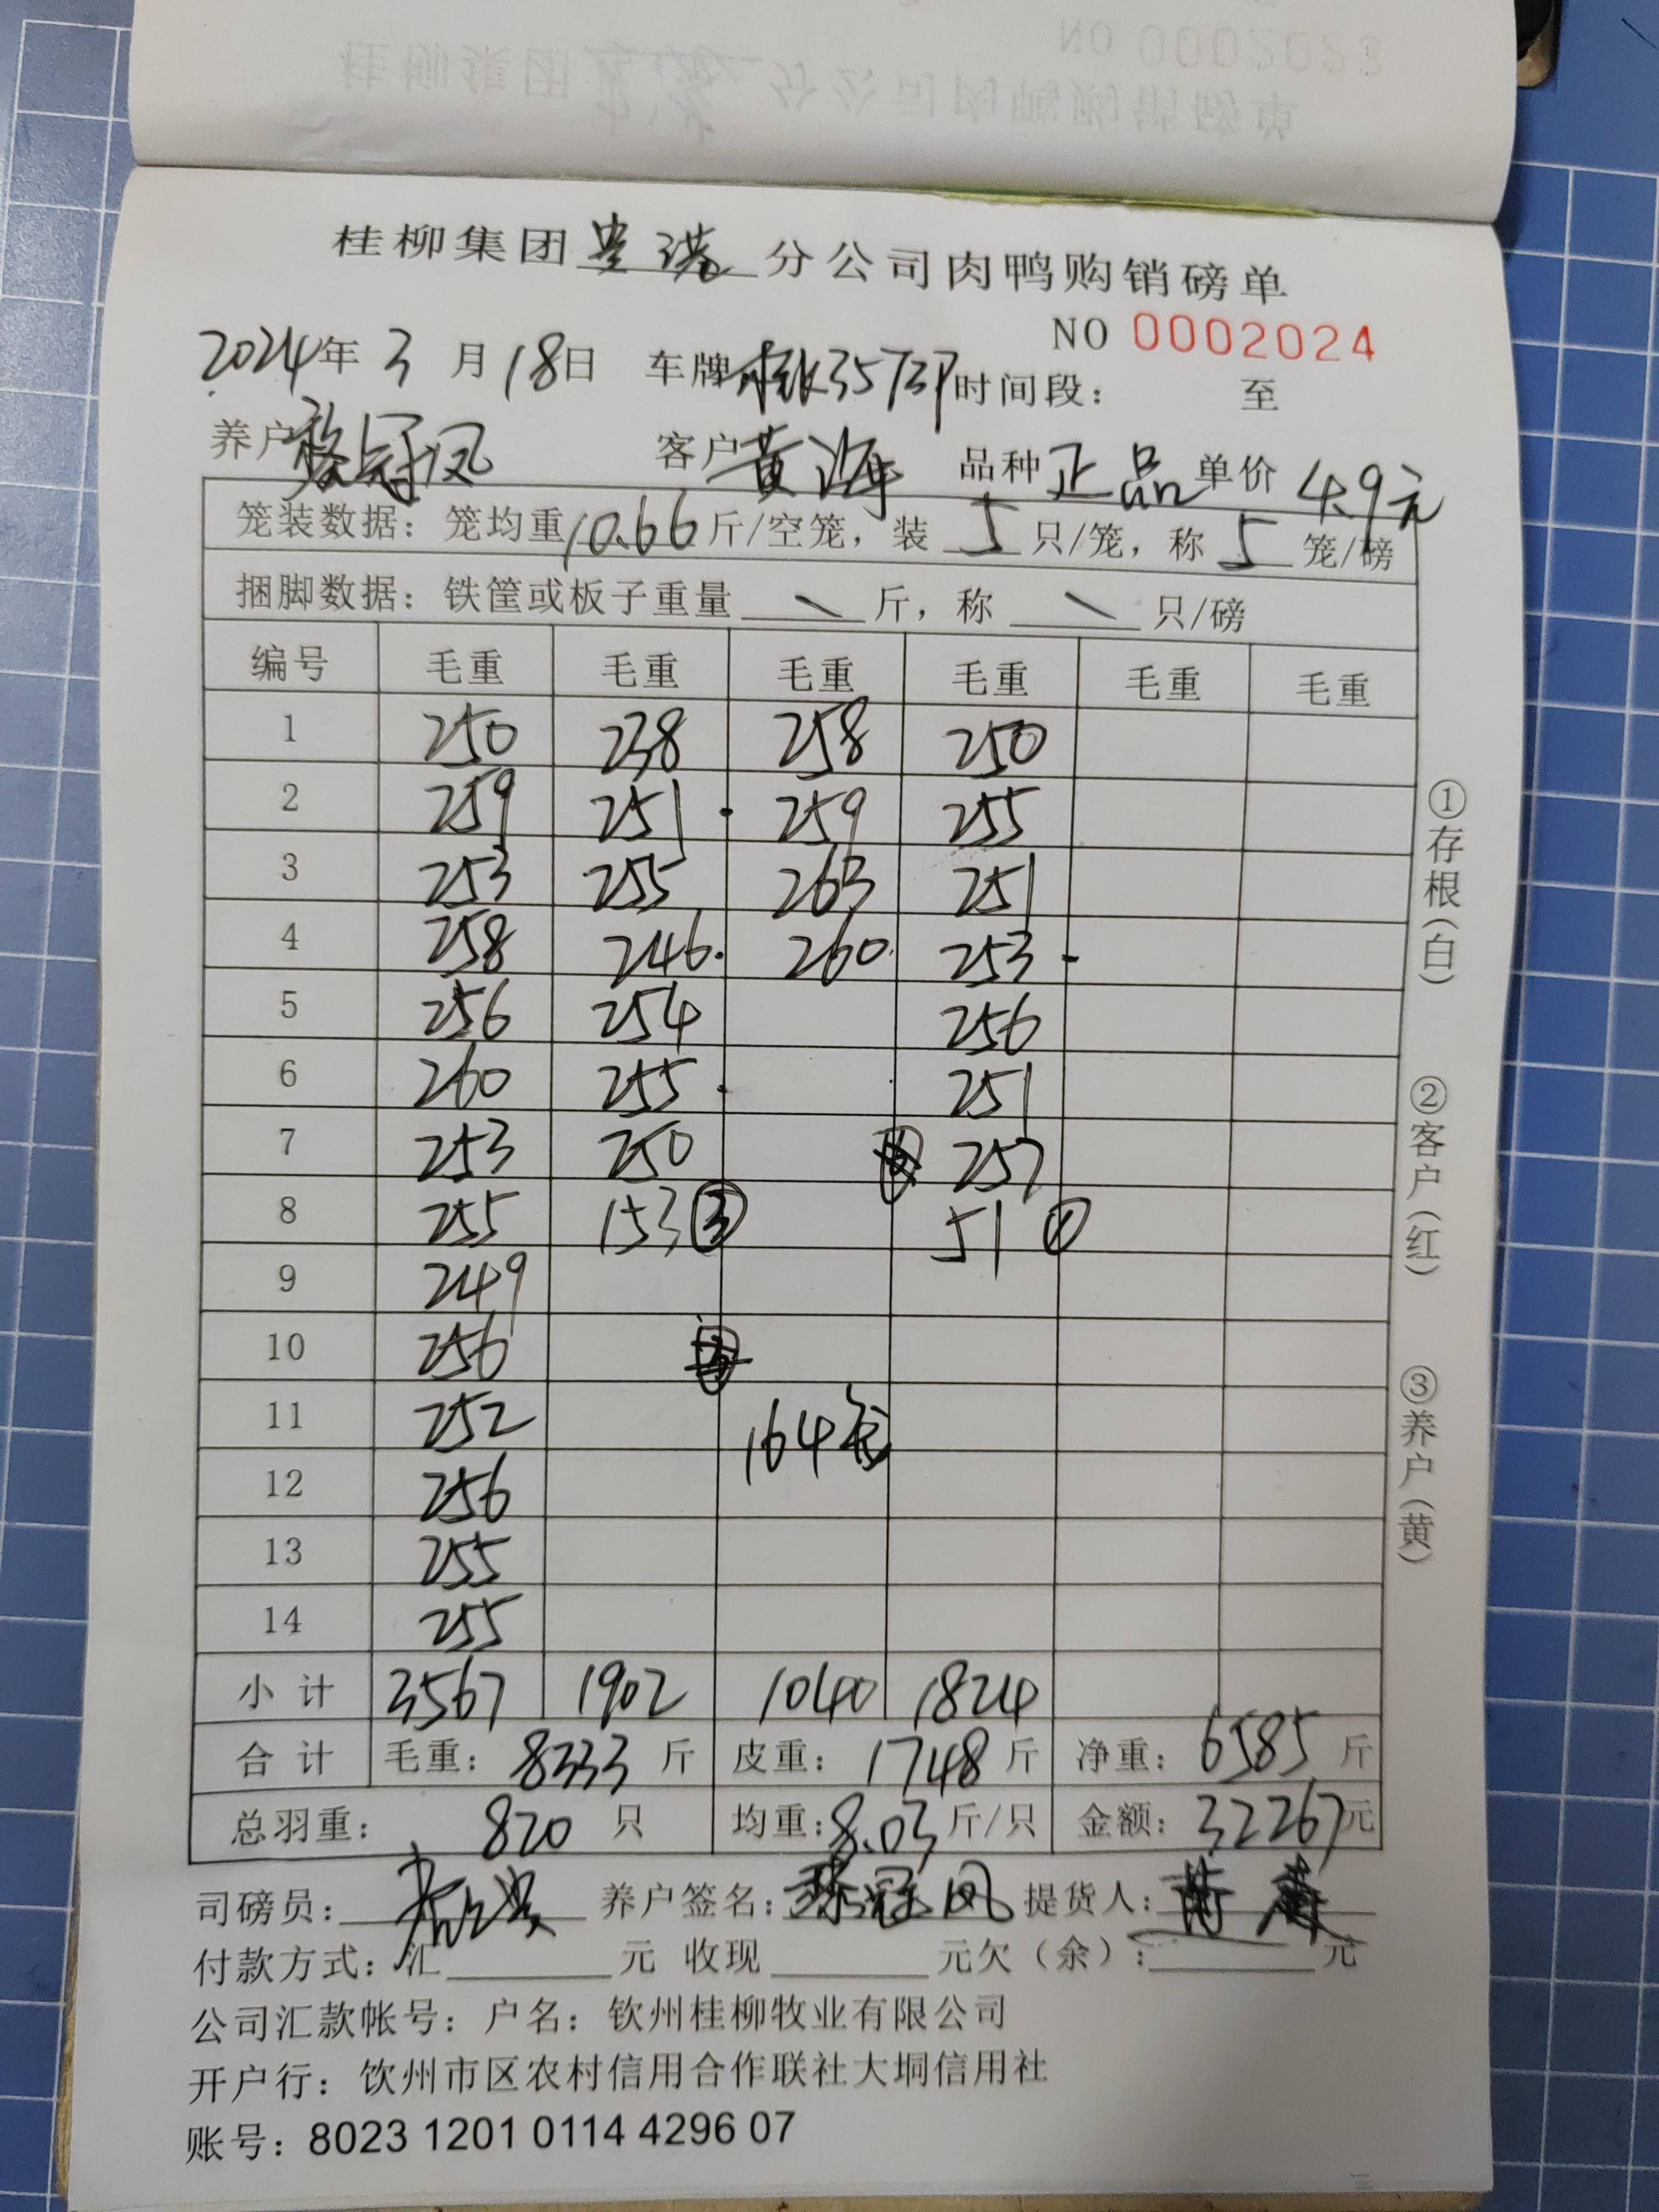 NO 0002023
桂柳集团 分公司肉鸭购销磅单
桂柳集团贵港分公司肉鸭购销磅单
NO 0002024
2024年 3 月 18日 车牌 时间段： 至
养户 冠凤 客户 黄海 品种 正品 单价 4.9元
笼装数据：笼均重10.66斤/空笼，装 5 只/笼，称 5 笼/磅
捆脚数据：铁筐或板子重量 \ 斤，称 \ 只/磅
编号 毛重 毛重 毛重 毛重 毛重 毛重
1 250 238 258 250
2 259 251 259 255
3 253 255 263 251
4 258 246 260 253
5 256 254 256
6 260 255 251
7 253 250 257
8 255 153 ③ 51 ①
9 249
10 256
11 252 164笼
12 256
13 255
14 255
小计 3567 1902 1040 1824
合计 毛重：8333斤 皮重：1748斤 净重：6585斤
总羽重：820 只 均重：8.03斤/只 金额：32267元
司磅员： 养户签名： 冠凤 提货人：
付款方式：汇 元 收现 元欠（余）： 元
公司汇款帐号：户名：钦州桂柳牧业有限公司
开户行：饮州市区农村信用合作联社大垌信用社
账号：8023 1201 0114 4296 07
①存根（白）
②客户（红）
③养户（黄）